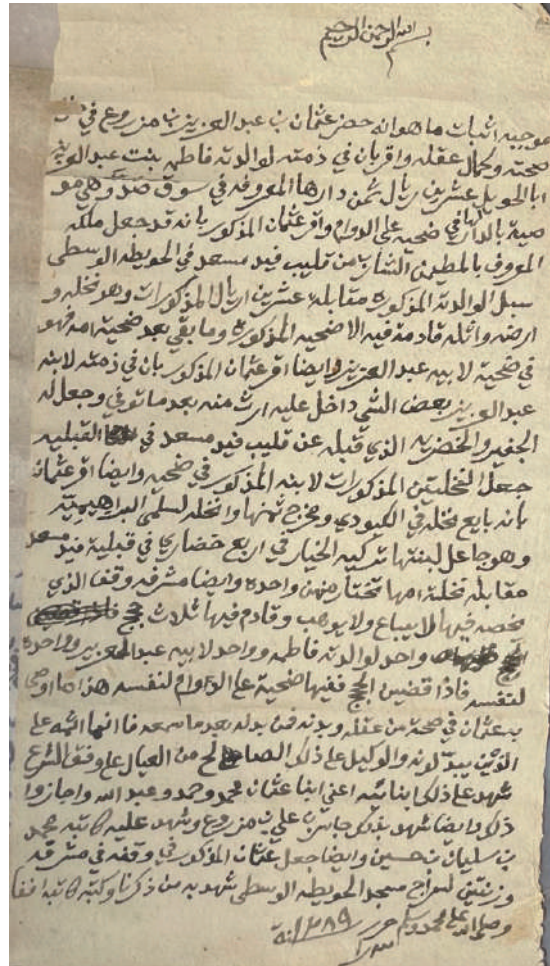 بسم الله الرحمن الرحيم
موجبه اثبات ما هو انه حضر عثمان بن عبد العزيز بن مزروع في
صحته وكمال عقله واقر بان في ذمته لوالدته فاطمه بنت عبد العزيز
ابا الحويل عشرين ريال ثمن دارها المعروفه في سوق وهي مو
صية بالدار في ضحيه على الدوام واقر عثمان المذكور بانه قد جعل ملكه
المعروف بالمطيمن الثمان من قليب فيد مسعد في الحويطه الوسطى
سبل لوالدته المذكوره مقابلة عشرين اريال المذكورات وهو نخله و
ارضه واثله قادمة فيه الاضحيه المذكوره وما بقي بعد ضحية امه فهو
في ضحية لابيه عبد العزيز وايضا اقر عثمان المذكور بان في ذمته لابنه
عبد العزيز بعض الشي داخل عليه ارث منه بعد ما توفي وجعل له
والخضريه الذي قبله عن قليب فيد مسعد في القبليه
جعل النخلتين المذكورات لابنه المذكور في ضحيه وايضا اقر عثمان
بانه بايع نخله في الكبودي ومخرج ثمنها وانخله لسلمى البراهيميه
وهو جاعل لبنتها تركيه الخيار في اربع خضاري في قبلية فيد مسعد
مقابلة نخلة امها تختار منهن واحده وايضا مشرفه وقف الذي
يخصه فيها لا يباع ولا يوهب وقادم فيها ثلاث حجج
واحد لوالدته فاطمه وواحد لابيه عبد العزيز وواحده
لنفسه فاذا قضين الحجج ففيها ضحية على الدوام لنفسه هذا ما اوصى
به عثمان في صحة من عقله وبدنه فمن بدله بعد ما سمعه فانما اثمه على
الذين يبدلونه والوكيل على ذلك الصالح من العيال على وفق الشرع
شهد على ذلك ابنائه اعني ابنا عثمان محمد وحمد وعبد الله واجازوا
ذلك وايضا شهد بذلك جاسر بن علي بن مزروع وشهد عليه كاتبه محمد
بن سليمان بن حسين وايضا جعل عثمان المذكور في وقفه في مشرفه
وزنتين لسراج مسجد الحويطه الوسطى شهد به من ذكرنا وكتبه كاتبه
وصلى الله على محمد وسلم حرر ١٢٨٩ سنة